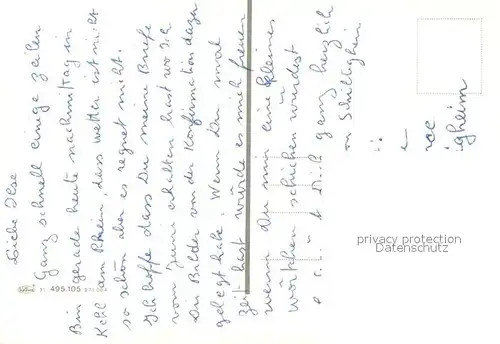 Liebe Ilse
Ganz schnell einige Zeilen
Bin gerade heute nachmittag in
Kehl am Rhein, dass wetter ist nicht
so schön aber es regnet nicht.
Ich hoffe dass Du meine Briefe
vom Juni erhalten hast wo ich
Dir Bilder von der Konfirmation dazu
gelegt habe. Wenn Du mal
Zeit hast würde es mich freuen
wenn Du mir eine kleines
wörtchen schicken würdest
Dich ganz herzlich
Schilligheim
gheim
495.105
privacy protection
Datenschutz